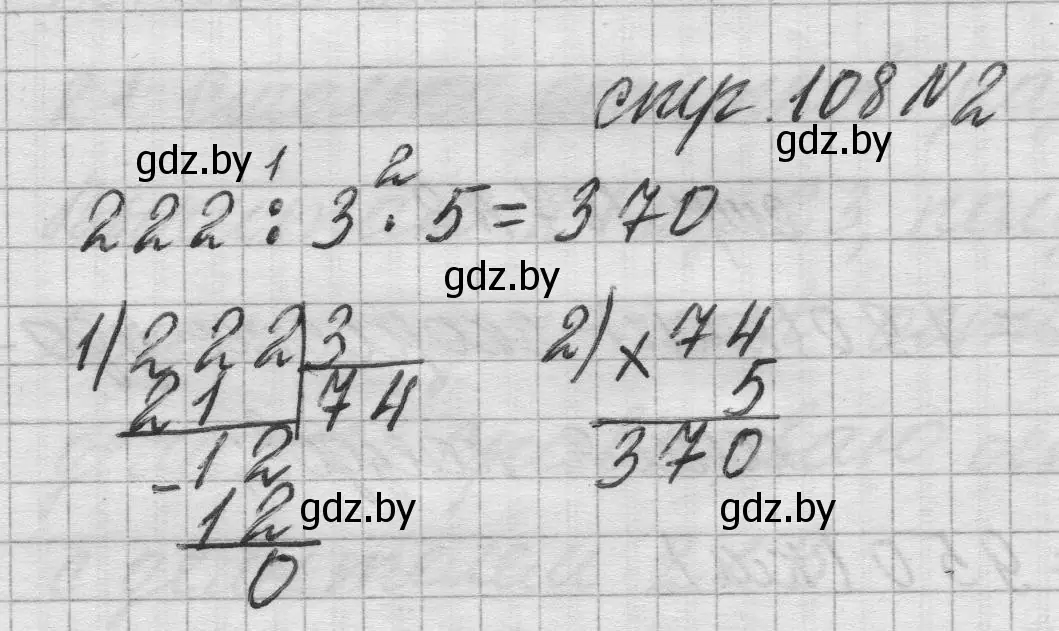 стр. 108 № 2
gdz.by
gdz.by 1 2
222 : 3 · 5 = 370
gdz.by
1) 222 3 2) × 74
21 74 5
- 12 370
12 gdz.by gdz.by
0